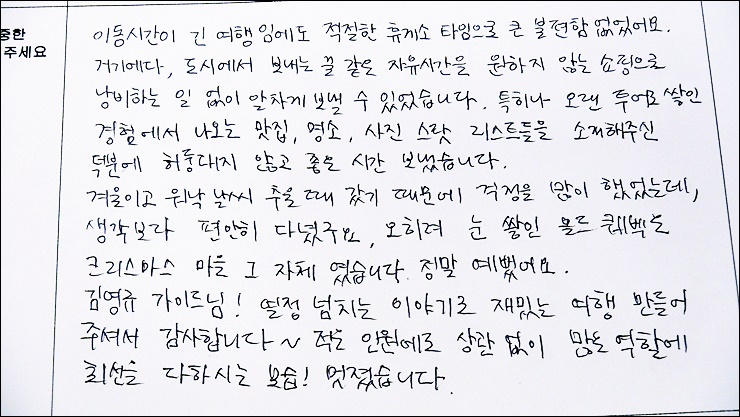 중한
주세요
이동시간이 긴 여행임에도 적절한 휴게소 타임으로 큰 불편함 없었어요.
거기에다, 도시에서 보내는 꿀 같은 자유시간을 원하지 않는 쇼핑으로
낭비하는 일 없이 알차게 보낼 수 있었습니다. 특히나 오랜 투어로 쌓인
경험에서 나오는 맛집, 명소, 사진 스팟 리스트들을 소개해주신
덕분에 허둥대지 않고 좋은 시간 보냈습니다.
겨울이고 워낙 날씨 추울 때 갔기 때문에 걱정을 많이 했었는데,
생각보다 편안히 다녔구요, 오히려 눈 쌓인 올드 퀘벡은
크리스마스 마을 그 자체였습니다. 정말 예뻤어요.
김영규 가이드님! 열정 넘치는 이야기로 재밌는 여행 만들어
주셔서 감사합니다~ 적은 인원에도 상관 없이 맡은 역할에
최선을 다하시는 모습! 멋졌습니다.